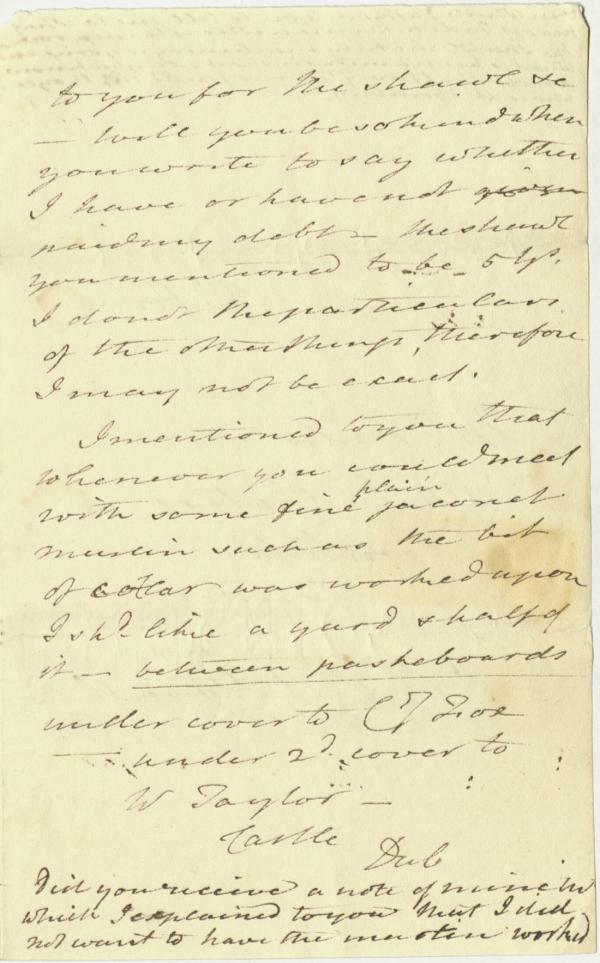 to you for the shawl &c
— Will you be so kind when
you write to say whether
I have or have not given
paid my debt — the shawl
you mentioned to be 5
I do not the particulars
of the other things, therefore
I may not be exact.
I mentioned to you that
whenever you could meet
with some fine plain jaconet
muslin such as the bit
of collar was worked upon
I shd. like a yard & half of
it — between pasteboards
under cover to C Fox
— under 2d. cover to
W Taylor —
Castle
Dub
Did you receive a note of mine in
which I explained to you that I did
not want to have the muslin worked